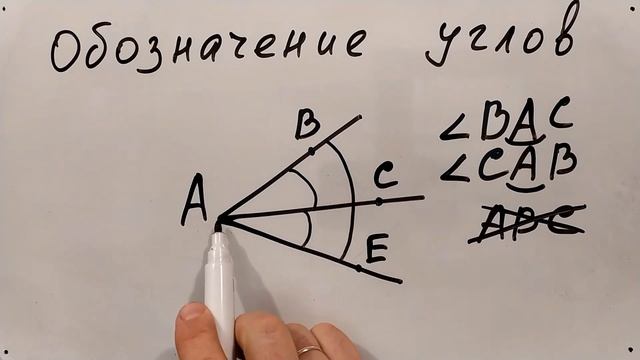 Обозначение углов
B
∠BAC
A
C
∠CAB
E
ABC